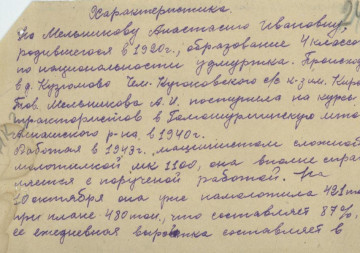 Характеристика.
На Мельникову Анастасию Ивановну,
родившегося в 1920г., образование 4 класса
по национальности удмуртка. Происход
в д. Кузюмово Чем. Куюковского с/с к-з им. Киро
Тов. Мельникова А. И. поступила на курс
трактористов в Галошурминскую мтс
р-на, в 1940г.
Работая в 1943г. машинистом сложной
молотилкой МК 1100, она вполне спра
вляется с порученой работой. На
10 октября она уже намолотила 421 тон
при плане 480 тон., что составляет 87%,
ее ежедневная выработка составляет в